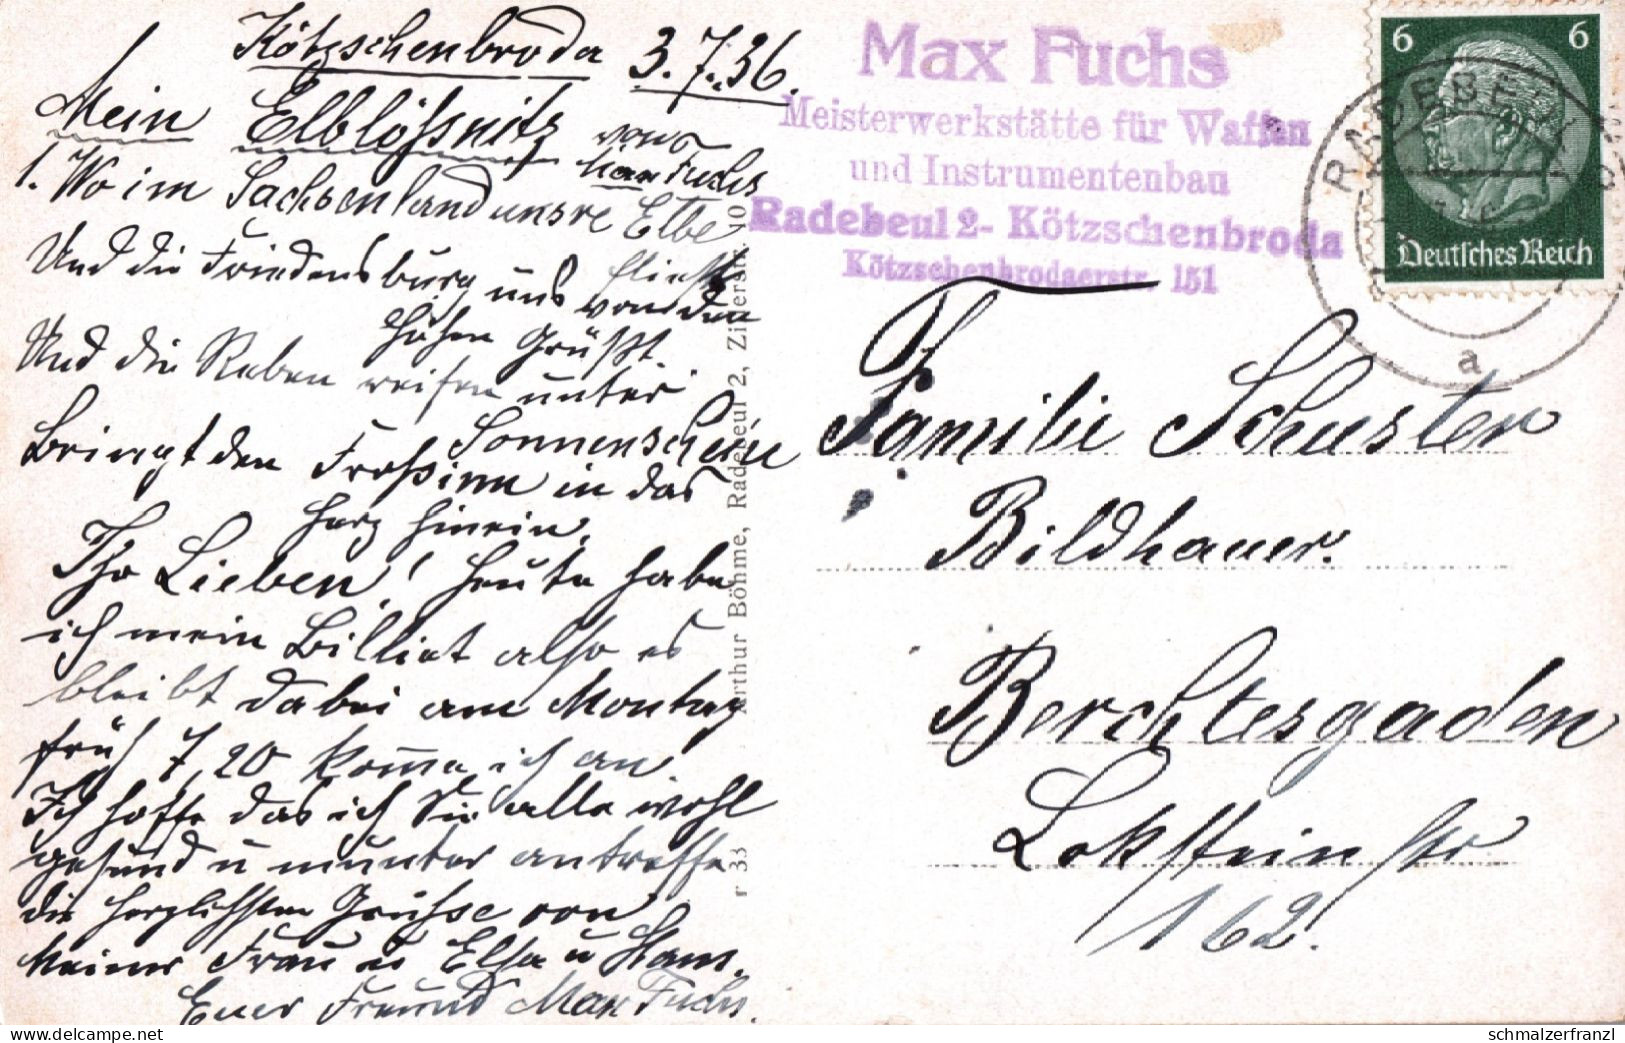 Kötzschenbroda 3.7.36.
Mein Elblößnitz von
Max Fuchs
1. Wo im Sachsenland unsre Elbe
fließt
Und die Friedensburg uns von den
Höhen Grüßt.
Und die Reben reifen unter
Sonnenschein
Bringt den Frohsinn in das
Herz hinein.
Ihr Lieben! Heute habe
ich mein Billiet also es
bleibt dabei am Montag
früh 7,20 komme ich an
Ich hoffe das ich Sie alle wohl
gesund u munter antreffe
die herzlichsten Grüsse von
Meiner Frau u Elsa u Hans.
Euer Freund Max Fuchs.
Arthur Böhme, Radebeul 2, Zillerstr. 10
r 33
Max Fuchs
Meisterwerkstätte für Waffen
und Instrumentenbau
Radebeul 2- Kötzschenbroda
Kötzschenbrodaerstr. 151
6 6
Deutsches Reich
RADEBEUL
a
Familie Schuster
Bildhauer.
Berchtesgaden
Lokstein str
162.
delcampe.net
schmalzerfranzl